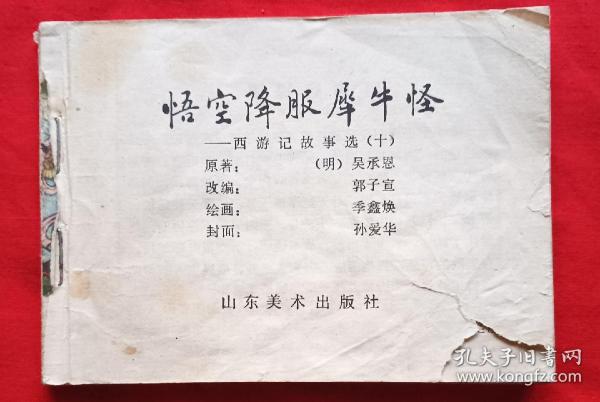 悟空降服犀牛怪
——西游记故事选（十）
原著： （明）吴承恩
改编： 郭子宣
绘画： 季鑫焕
封面： 孙爱华
山东美术出版社
孔夫子旧书网
www.kongfz.com